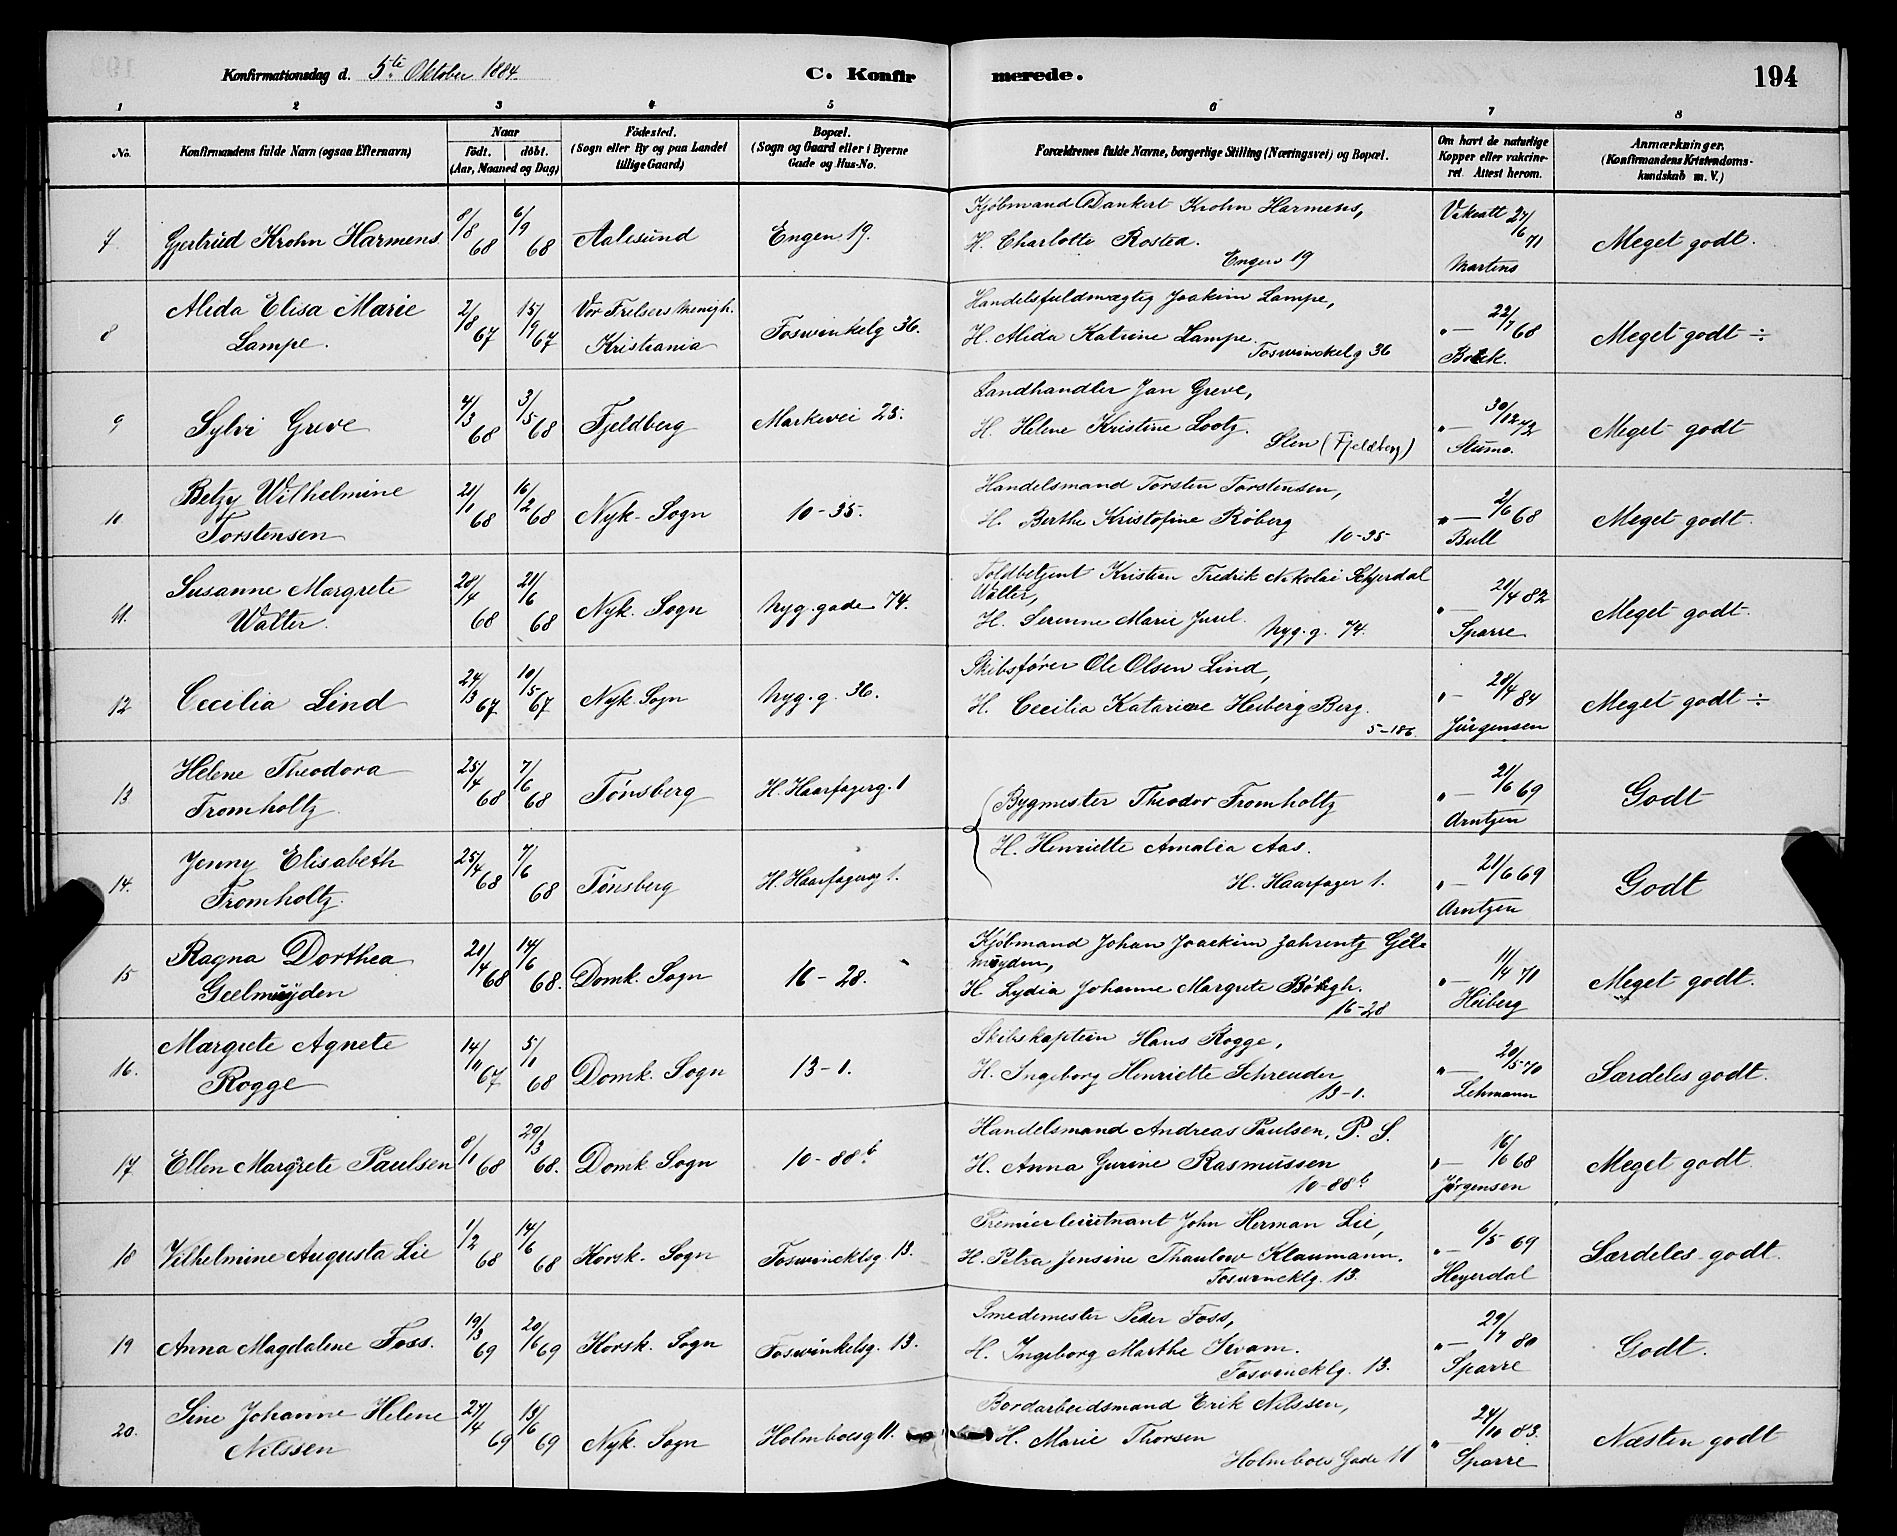 Konfirmationsdag d. 5te Oktober 1884.
C. Konfirmerede.
194
1 2 3 4 5 6 7 8
No.
Konfirmandens fulde Navn (ogsaa Efternavn)
Naar
født. døbt.
(Aar, Maaned og Dag)
Fødested.
(Sogn eller By og paa Landet
tillige Gaard)
Bopæl.
(Sogn og Gaard eller i Byerne
Gade og Hus-No.
Forældrenes fulde Navne, borgerlige Stilling (Næringsvei) og Bopæl.
Om havt de naturlige
Kopper eller vakcine-
ret. Attest herom.
Anmærkninger.
(Konfirmandens Kristendoms-
kundskab m. V.)
7. Gjertrud Krohn Harmens 8/8 68 6/9 68 Aalesund Engen 19.
Kjøbmand Dankert Krohn Harmens,
H. Charlotte Rosted.
Engen 19
Vakcatt 27/6 71
Martens
Meget godt.
8 Alida Elisa Marie
Lampe. 2/8 67 15/9 67 Vor Frelsers Menigh.
Kristiania Foswinkelg 36.
Handelsfuldmægtig Joakim Lampe,
H. Alida Katrine Lampe.
Foswinckelg 36
"— 22/7 68
Boeck.
Meget godt ÷
9 Sylvi Greve 4/3 68 3/5 68 Fjeldberg Markevei 25.
Landhandler Jan Greve,
H. Helene Kristine Lootz.
Ølen (Fjeldberg)
"— 30/12 72
Stumo.
Meget godt
10 Betzy Wilhelmine
Torstensen 21/1 68 16/2 68 Nyk. Sogn 10-35.
Handelsmand Torsten Torstensen,
H. Berthe Kristofine Røberg
10-35
"— 2/6 68
Bull
Meget godt.
11. Susanne Margrete
Walter. 28/4 68 21/6 68 Nyk. Sogn Nyg. gade 74.
Toldbetjent Kristian Fredrik Nikolai Schjerdal
Walter,
H. Serenne Marie Juul.
Nyg. g. 74.
"— 21/4 82
Sparre
Meget godt.
12 Cecilia Lind 24/3 67 10/5 67 Nyk. Sogn Nyg. g. 36.
Skibsfører Ole Olsen Lind,
H. Cecilia Katarine Heiberg Berg.
5-186.
"— 28/4 84
Jürgensen
Meget godt ÷
13 Helene Theodora
Fromholtz. 25/4 68 7/6 68 Tønsberg H. Haarfagerg. 1
Bygmester Theodor Fromholtz
"— 21/6 69
Arntzen
Godt
14. Jenny Elisabeth
Fromholtz. 25/4 68 7/6 68 Tønsberg H. Haarfagerg 1.
H. Henriette Amalia Aas.
H. Haarfager 1.
"— 21/6 69
Arntzen
Godt
15 Ragna Dorthea
Geelmuyden 21/4 68 14/6 68. Domk. Sogn 16-28.
Kjøbmand Johan Joackim Jahrentz Geel-
muyden,
H Lydia Johanne Margrete Bøhgh.
16-28
"— 11/4 71
Heiberg
Meget godt.
16. Margrete Agnete
Rogge 14/11 67 5/1 68 Domk. Sogn 13-1.
Skibskaptein Hans Rogge,
H. Ingeborg Henriette Schreuder
13-1.
"— 20/5 70
Lehmann
Særdeles godt.
17 Ellen Margrete Paulsen 8/1 68 29/3 68. Domk Sogn 10-88b
Handelsmand Andreas Paulsen, P. S.
H. Anna Gurine Rasmussen
10-88b
"— 16/6 68
Jørgensen
Meget godt.
18 Vilhelmine Augusta Lie 1/2 68 14/6 68 Korsk. Sogn Foswincklsg. 13.
Premierlieutnant John Herman Lie,
H. Petra Jensine Thaulow Klaumann.
Foswincklg. 13.
"— 6/5 69
Heyerdal
Særdeles godt.
19 Anna Magdalene Foss. 19/3 69 20/6 69 Korsk. Sogn Foswinkelsg. 13.
Smedemester Peder Foss,
H. Ingeborg Marthe Kvam.
Foswincklg. 13.
"— 29/7 80
Sparre
Godt.
20. Sine Johanne Helene
Nilssen 27/4 69 13/6 69 Nyk. Sogn Holmboesg 11.
Bordarbeidsmand Erik Nilssen,
H. Marie Thorsen
Holmboes Gade 11
"— 24/10 83.
Sparre
Næsten godt